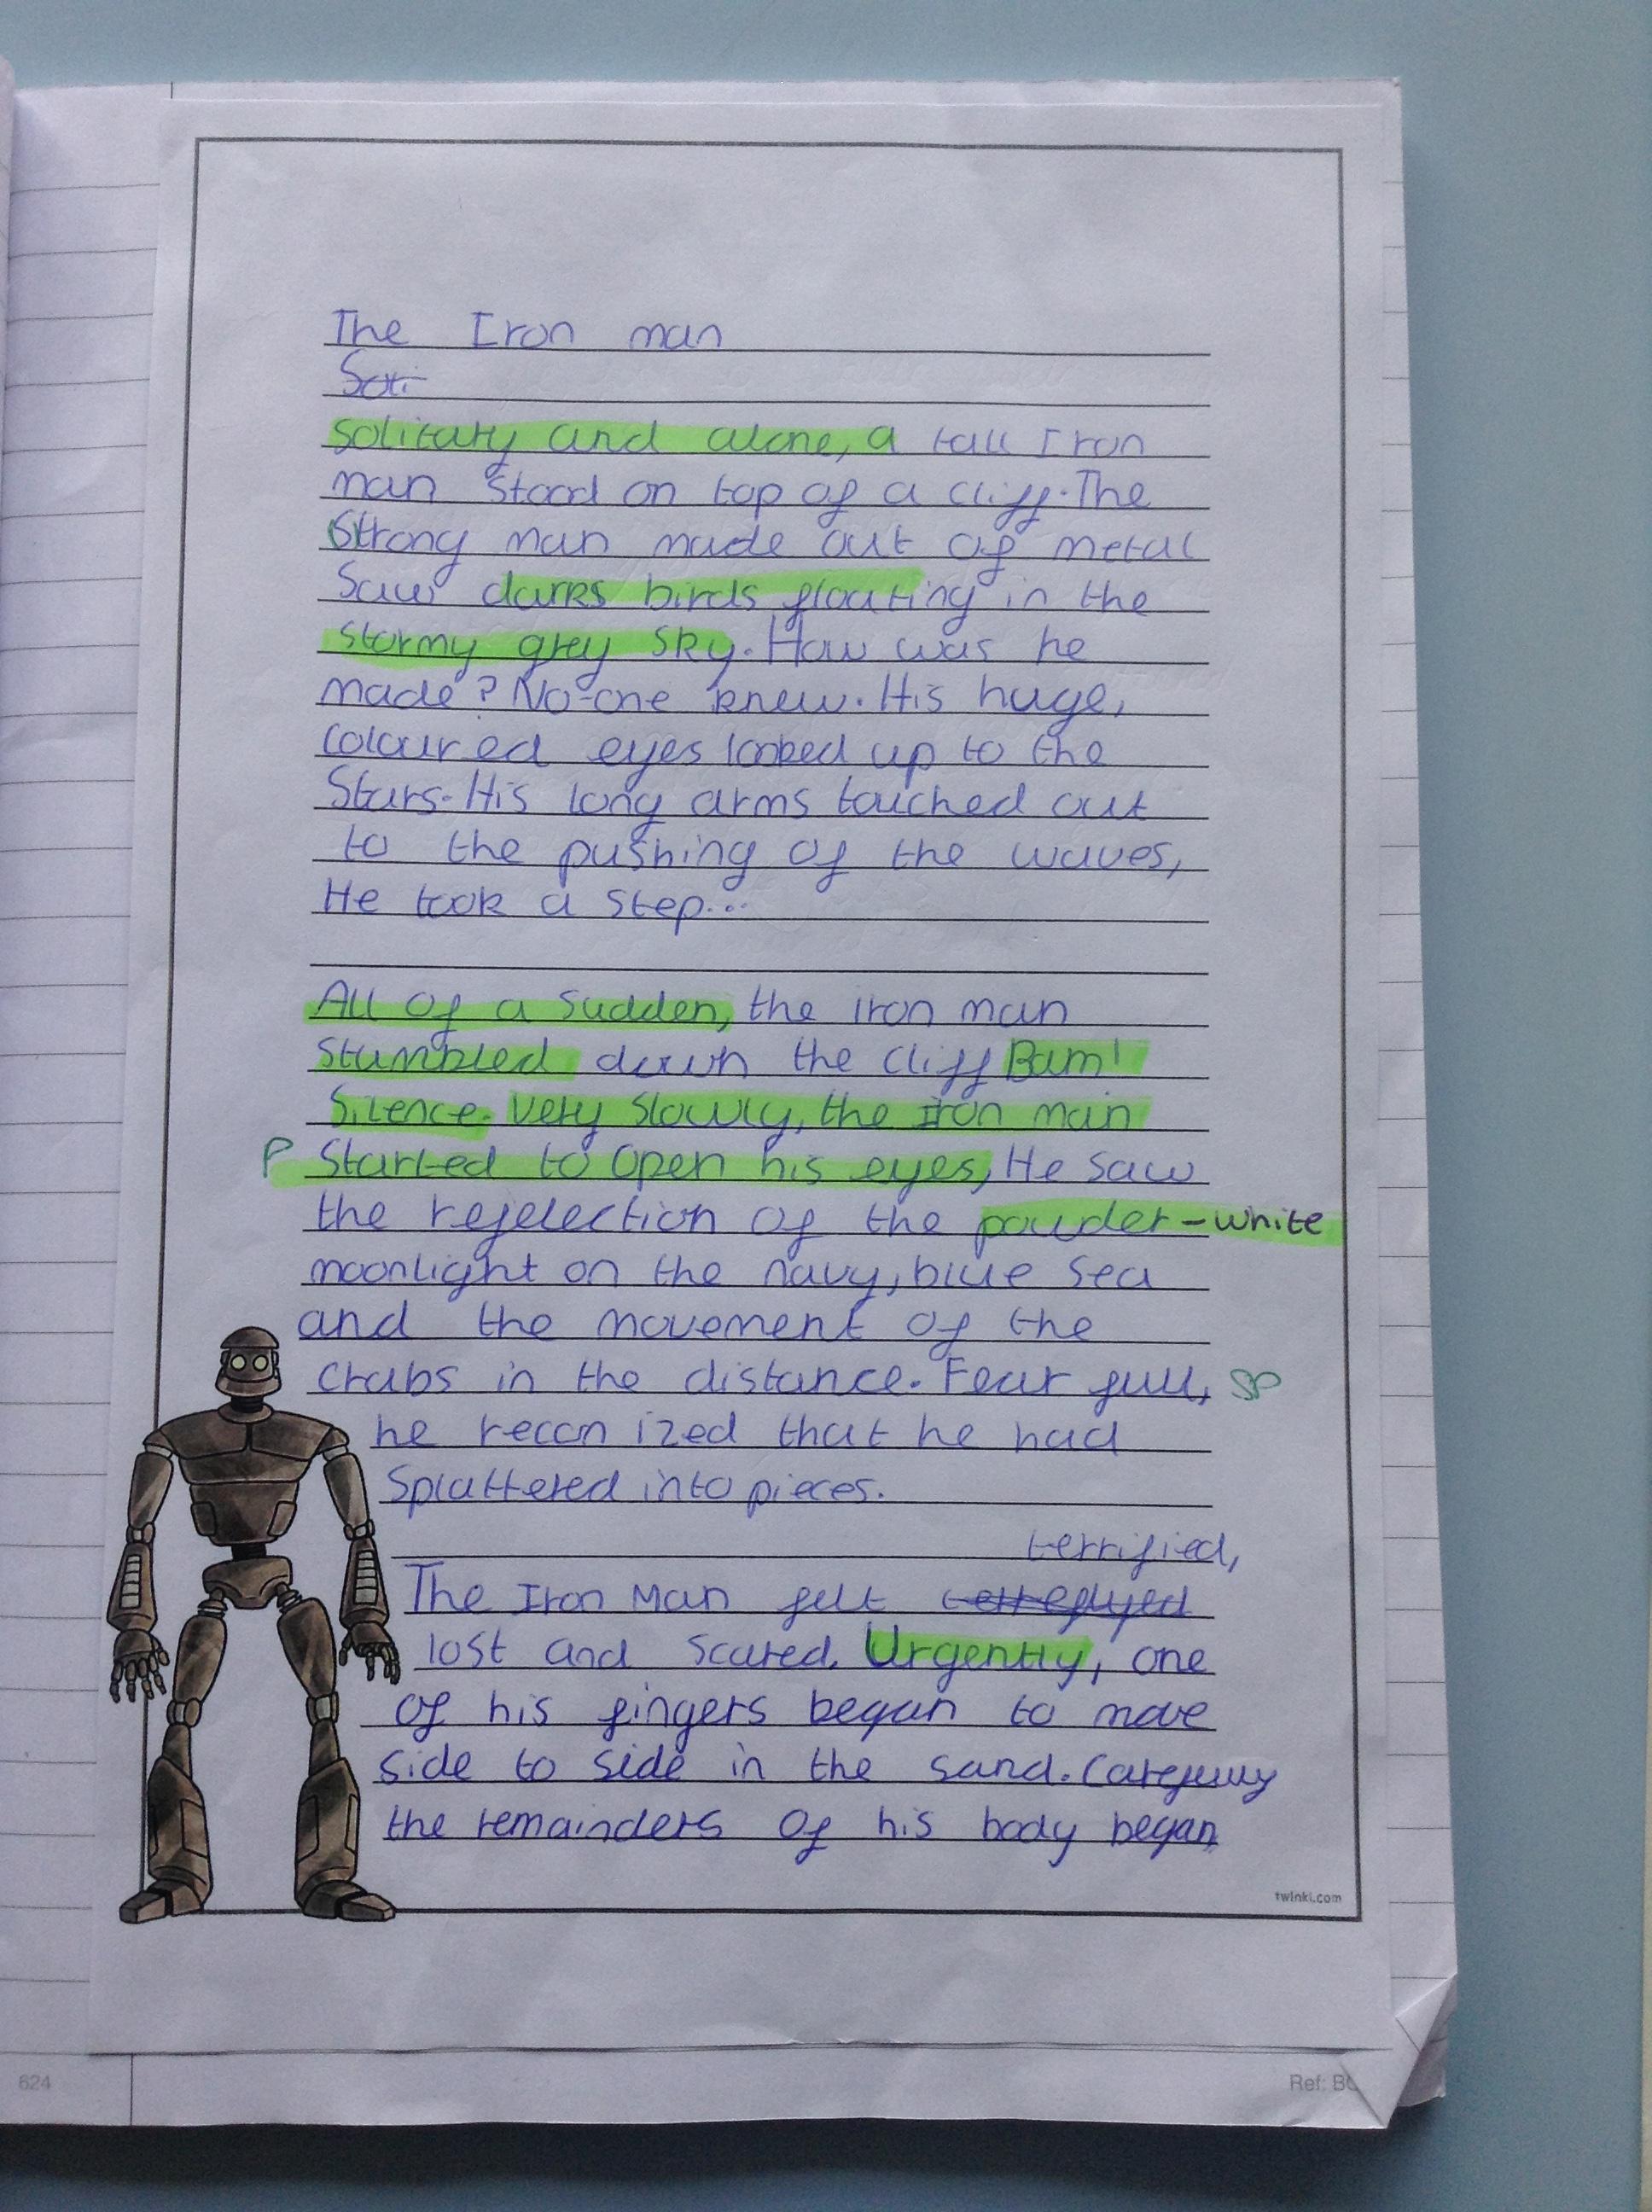 The Iron man
Soti
solitary and alone, a tall Iron
man stood on top of a cliff. The
Strong man made out of metal
Saw darks birds floating in the
stormy grey sky. How was he
made? No-one knew. His huge,
coloured eyes looked up to the
Stars. His long arms touched out
to the pushing of the waves,
He took a step...
All of a sudden, the iron man
stumbled down the cliff Bam!
Silence. Very slowly, the Iron man
P Started to open his eyes, He saw
the refelection of the powder-white
moonlight on the navy, blue sea
and the movement of the
crabs in the distance. Fear full, SP
he recon ized that he had
Splattered into pieces.
terrified,
The Iron Man felt terreflyed
lost and scared. Urgently, one
of his fingers began to move
side to side in the sand. Carefully
the remainders of his body began
twinkl.com
624
Ref: BC